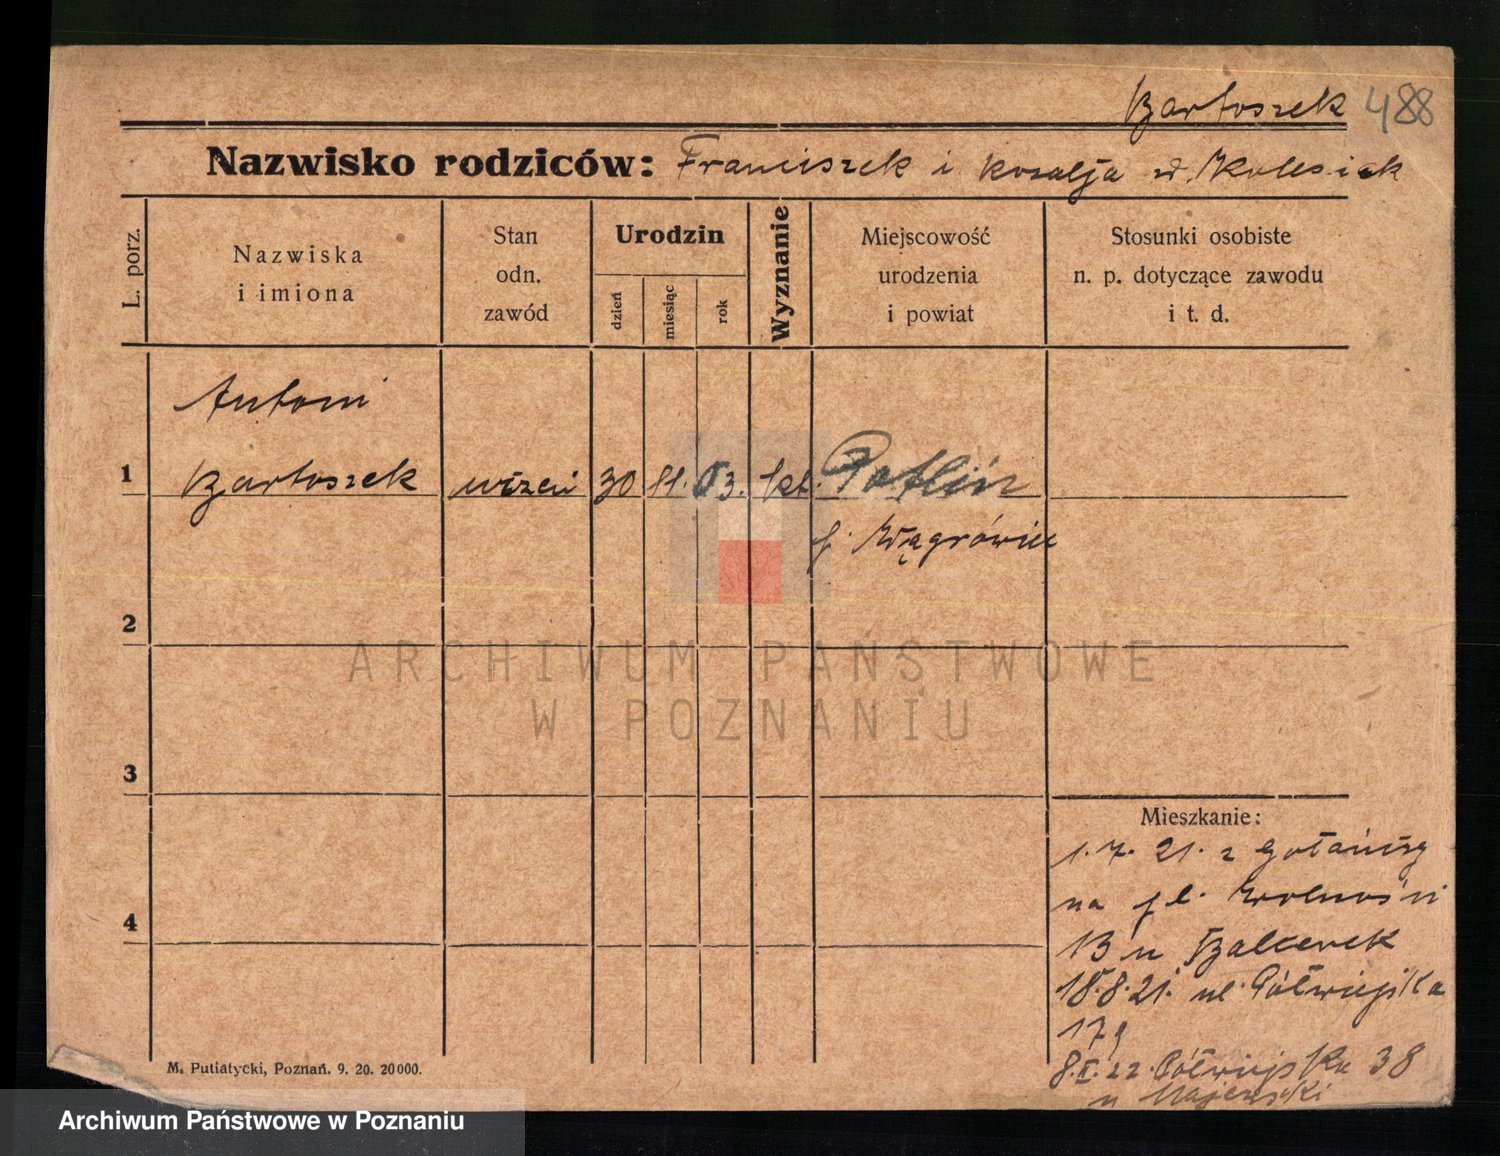 Bartoszek 488
Nazwisko rodziców: Franciszek i Rozalja
L. porz.
Nazwiska i imiona
Stan odn. zawód
Urodzin
dzień
miesiąc
rok
Wyznanie
Miejscowość urodzenia i powiat
Stosunki osobiste n. p. dotyczące zawodu i t. d.
Antoni
1 Bartoszek uczeń 30 11. 03. kt.
p. Wągrówiec
2
ARCHIWUM PAŃSTWOWE
W POZNANIU
3
Mieszkanie:
1.7.21. z Gołańczy
na pl. Wolności
13 u Balcerek
18.8.21. ul. Półwiejska
17
8.I.22. Półwiejska 38
u Majewski
4
M. Putiatycki, Poznań. 9. 20. 20000.
Archiwum Państwowe w Poznaniu